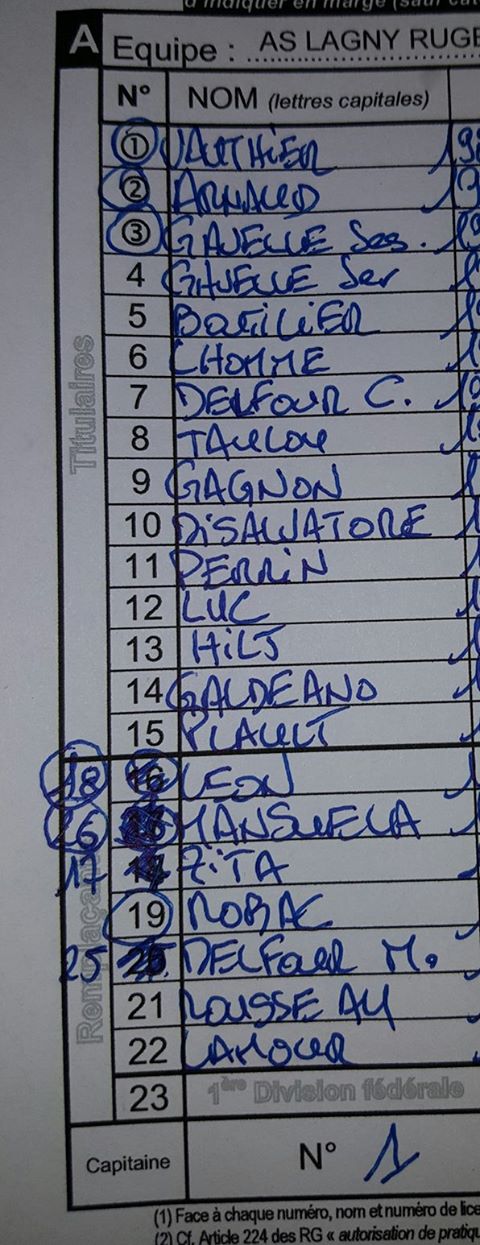 à indiquer en marge (sauf
A Equipe : AS LAGNY RUGB
N° NOM (lettres capitales)
Titulaires
1 VAUTHIER 19
2 ARNAUD 19
3 GAVELLE Seb. 19
4 GAVELLE Ser 1
5 BOFILIER 1
6 LHOMME 1
7 DELFOUR C. 19
8 TAULOU 1
9 GAGNON 1
10 DISALVATORE 1
11 PERRIN 1
12 LUC 1
13 HILT 1
14 GALDEANO 1
15 PLAULT 1
Remplaçants
18 16 LEON
16 MANSUELA
17 ZITA
19 NORAC
25 DELFOUR M.
21 ROUSSEAU
22 LAMOUR
23 1ère Division fédérale
Capitaine N° 1
(1) Face à chaque numéro, nom et numéro de lice
(2) Cf. Article 224 des RG « autorisation de pratiqu